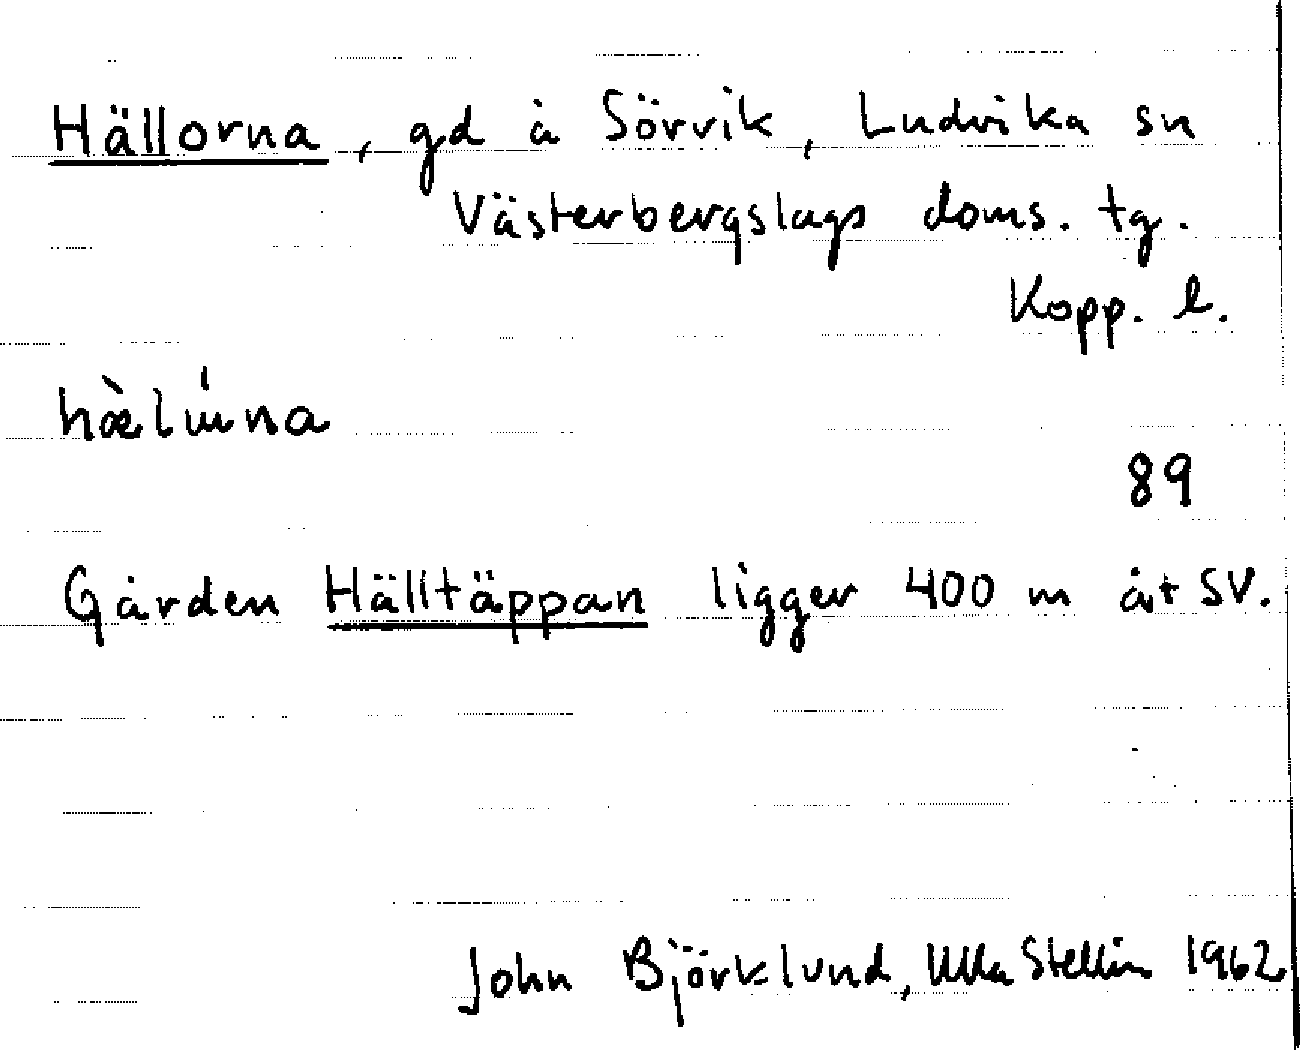 Hällorna, gd å Sörvik, Ludvika sn
Västerbergslags doms. tg.
Kopp. l.
89
Gården Hälltäppan ligger 400 m åt SV.
John Björklund, Ulla Stellin 1962